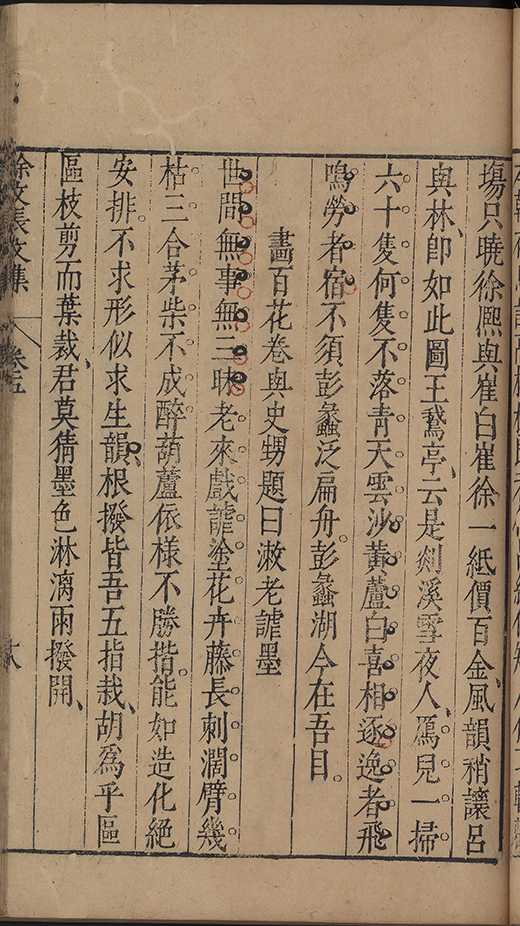 塲只曉徐熙與崔白崔徐一紙價百金、風韻稍讓呂
與林、卽如此圖王鵞亭、云是剡溪雪夜人、鴈兒一掃
六十隻何隻不落青天雲沙黄蘆白喜相逐逸者飛
鳴勞者宿不須彭蠡泛扁舟彭蠡湖今在吾目
畫百花卷與史甥題曰漱老謔墨
世間無事無三昧老來戲謔塗花卉藤長刺濶臂幾
枯三合茅柴不成醉葫蘆依樣不勝揩能如造化絕
安排不求形似求生韻、根撥皆吾五指栽、胡爲乎區
區枝剪而葉裁、君莫猜墨色淋漓雨撥開、
徐文長文集 卷五